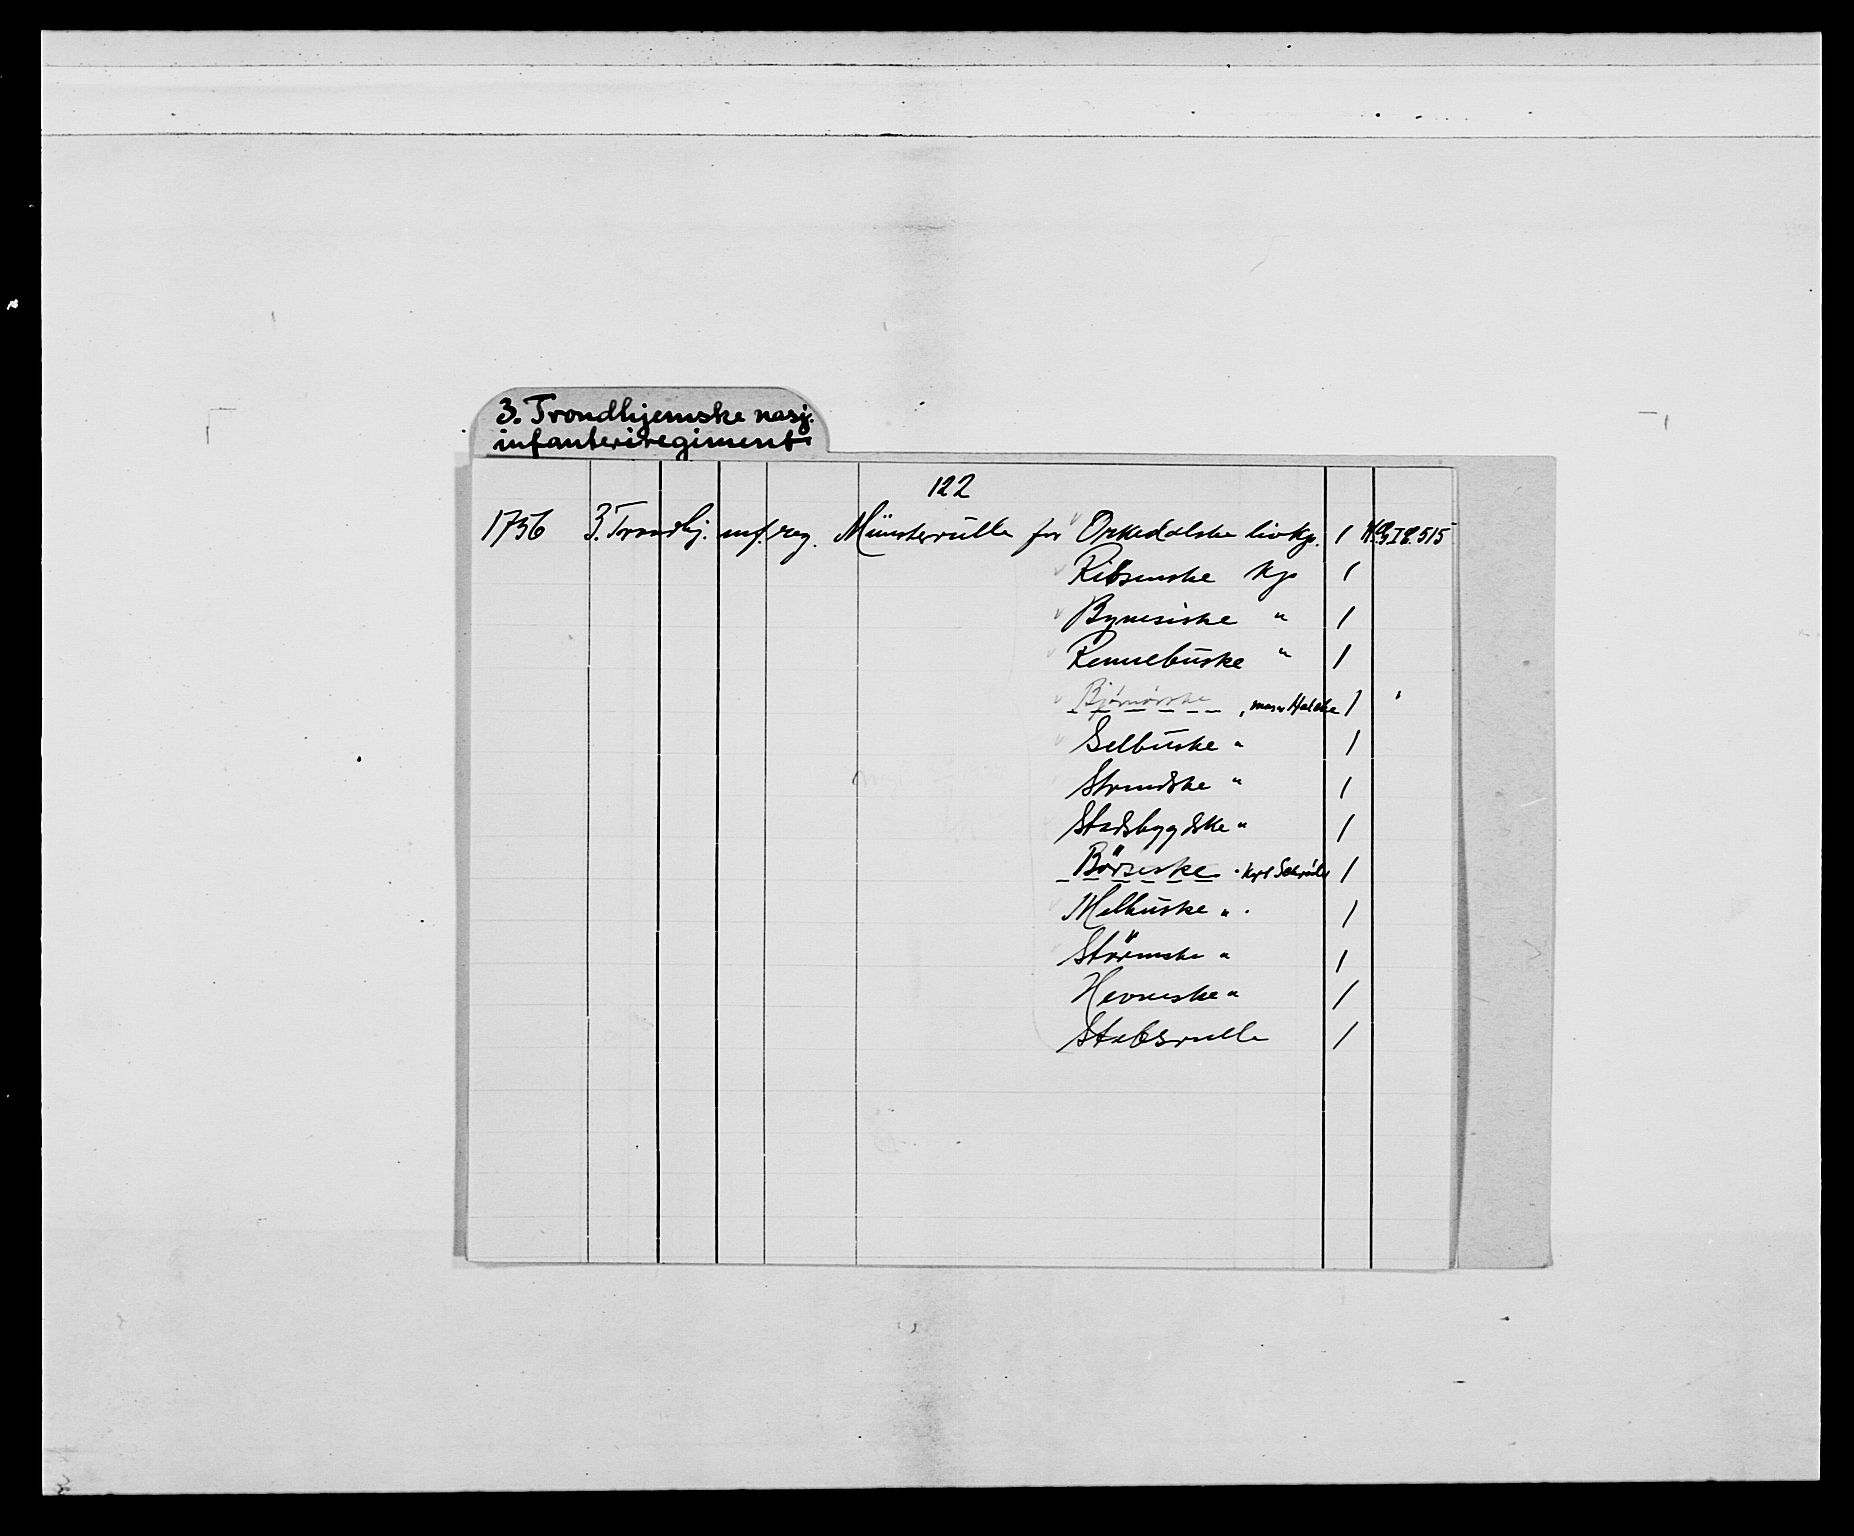 3. Trondhjemske nasj.
infanteriregiment
122
1756 3. Trondhj. inf. reg. Münsterrulle for Orkedalske livkp. 1
Ribsenske kp 1
Bynesiske " 1
Rennebuske " 1
Bjørnørske 1 "
Selbuske " 1
Strindske " 1
Stadsbygdske " 1
Börseske 1
Melhuske " 1
Störenske " 1
Hevneske " 1
Stabsrulle 1